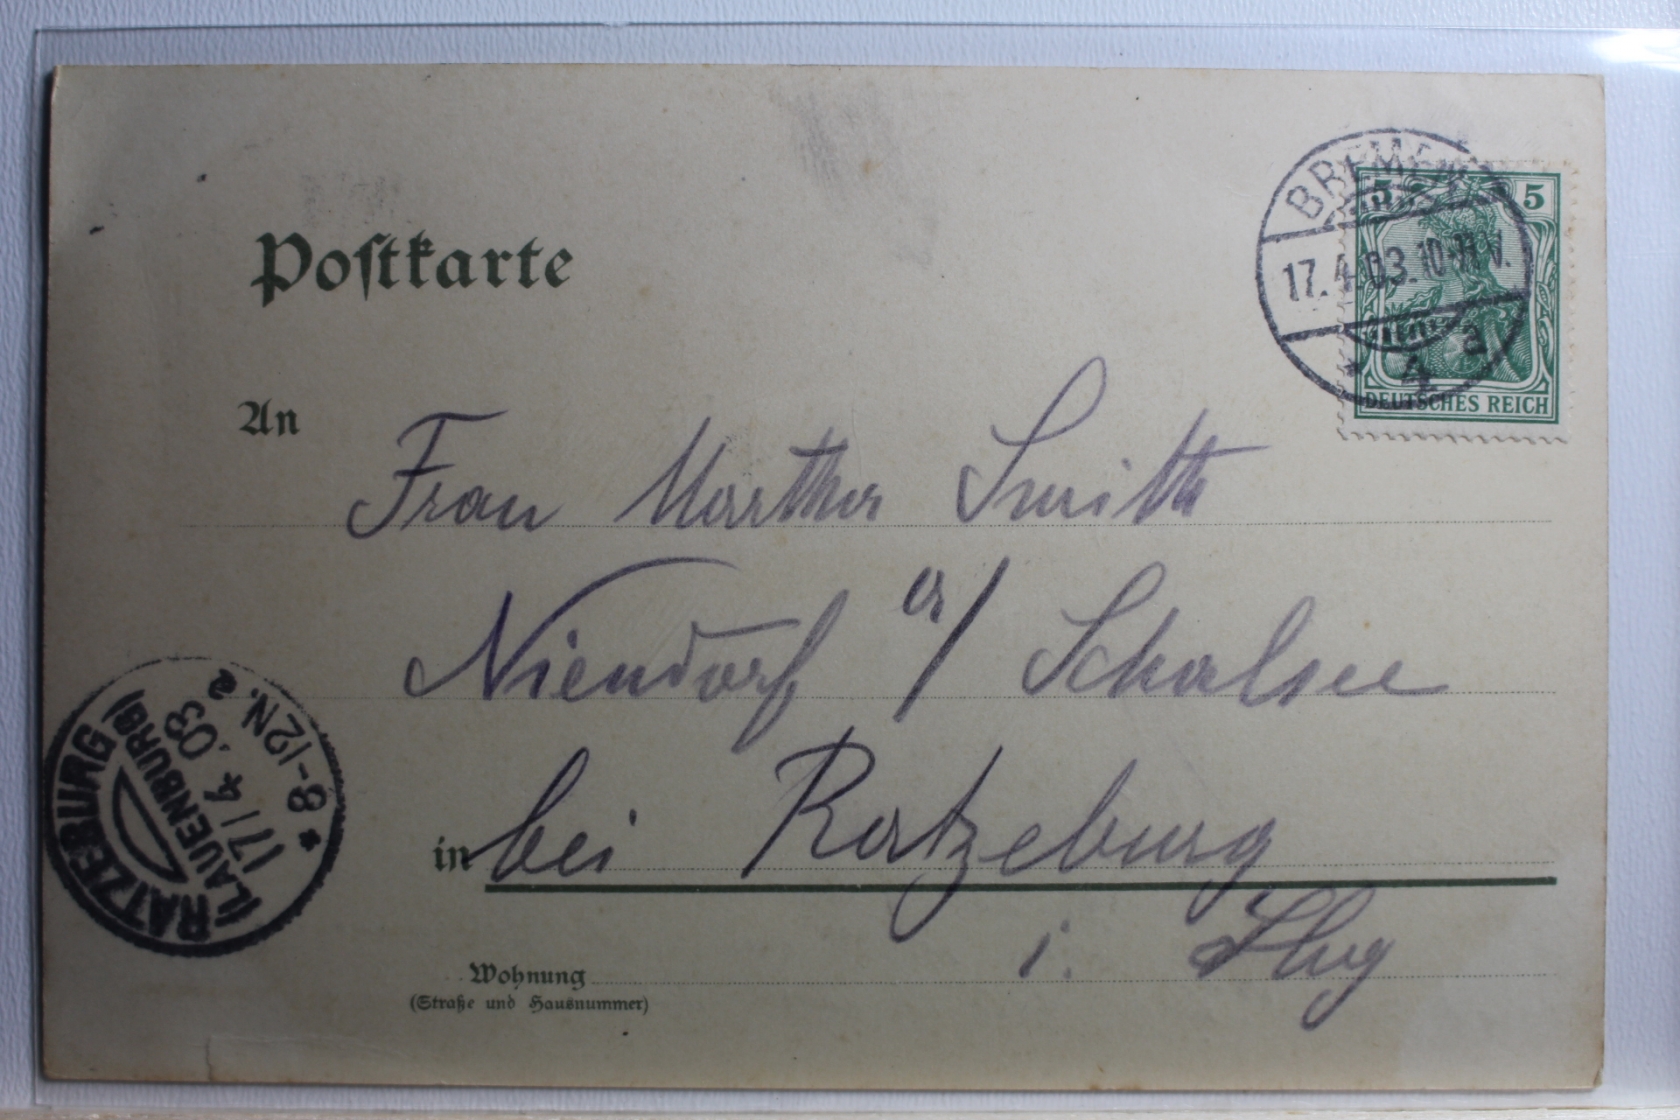 Postkarte
BREMEN
17.4.03.10-11V.
* 4 a
5 5
DEUTSCHES REICH
An
Frau Martha Smith
Niendorf a/ Schalsee
in bei Ratzeburg
i. Lbg
Wohnung
(Straße und Hausnummer)
RATZEBURG
(LAUENBURG)
17/4.03
8-12N. a
*